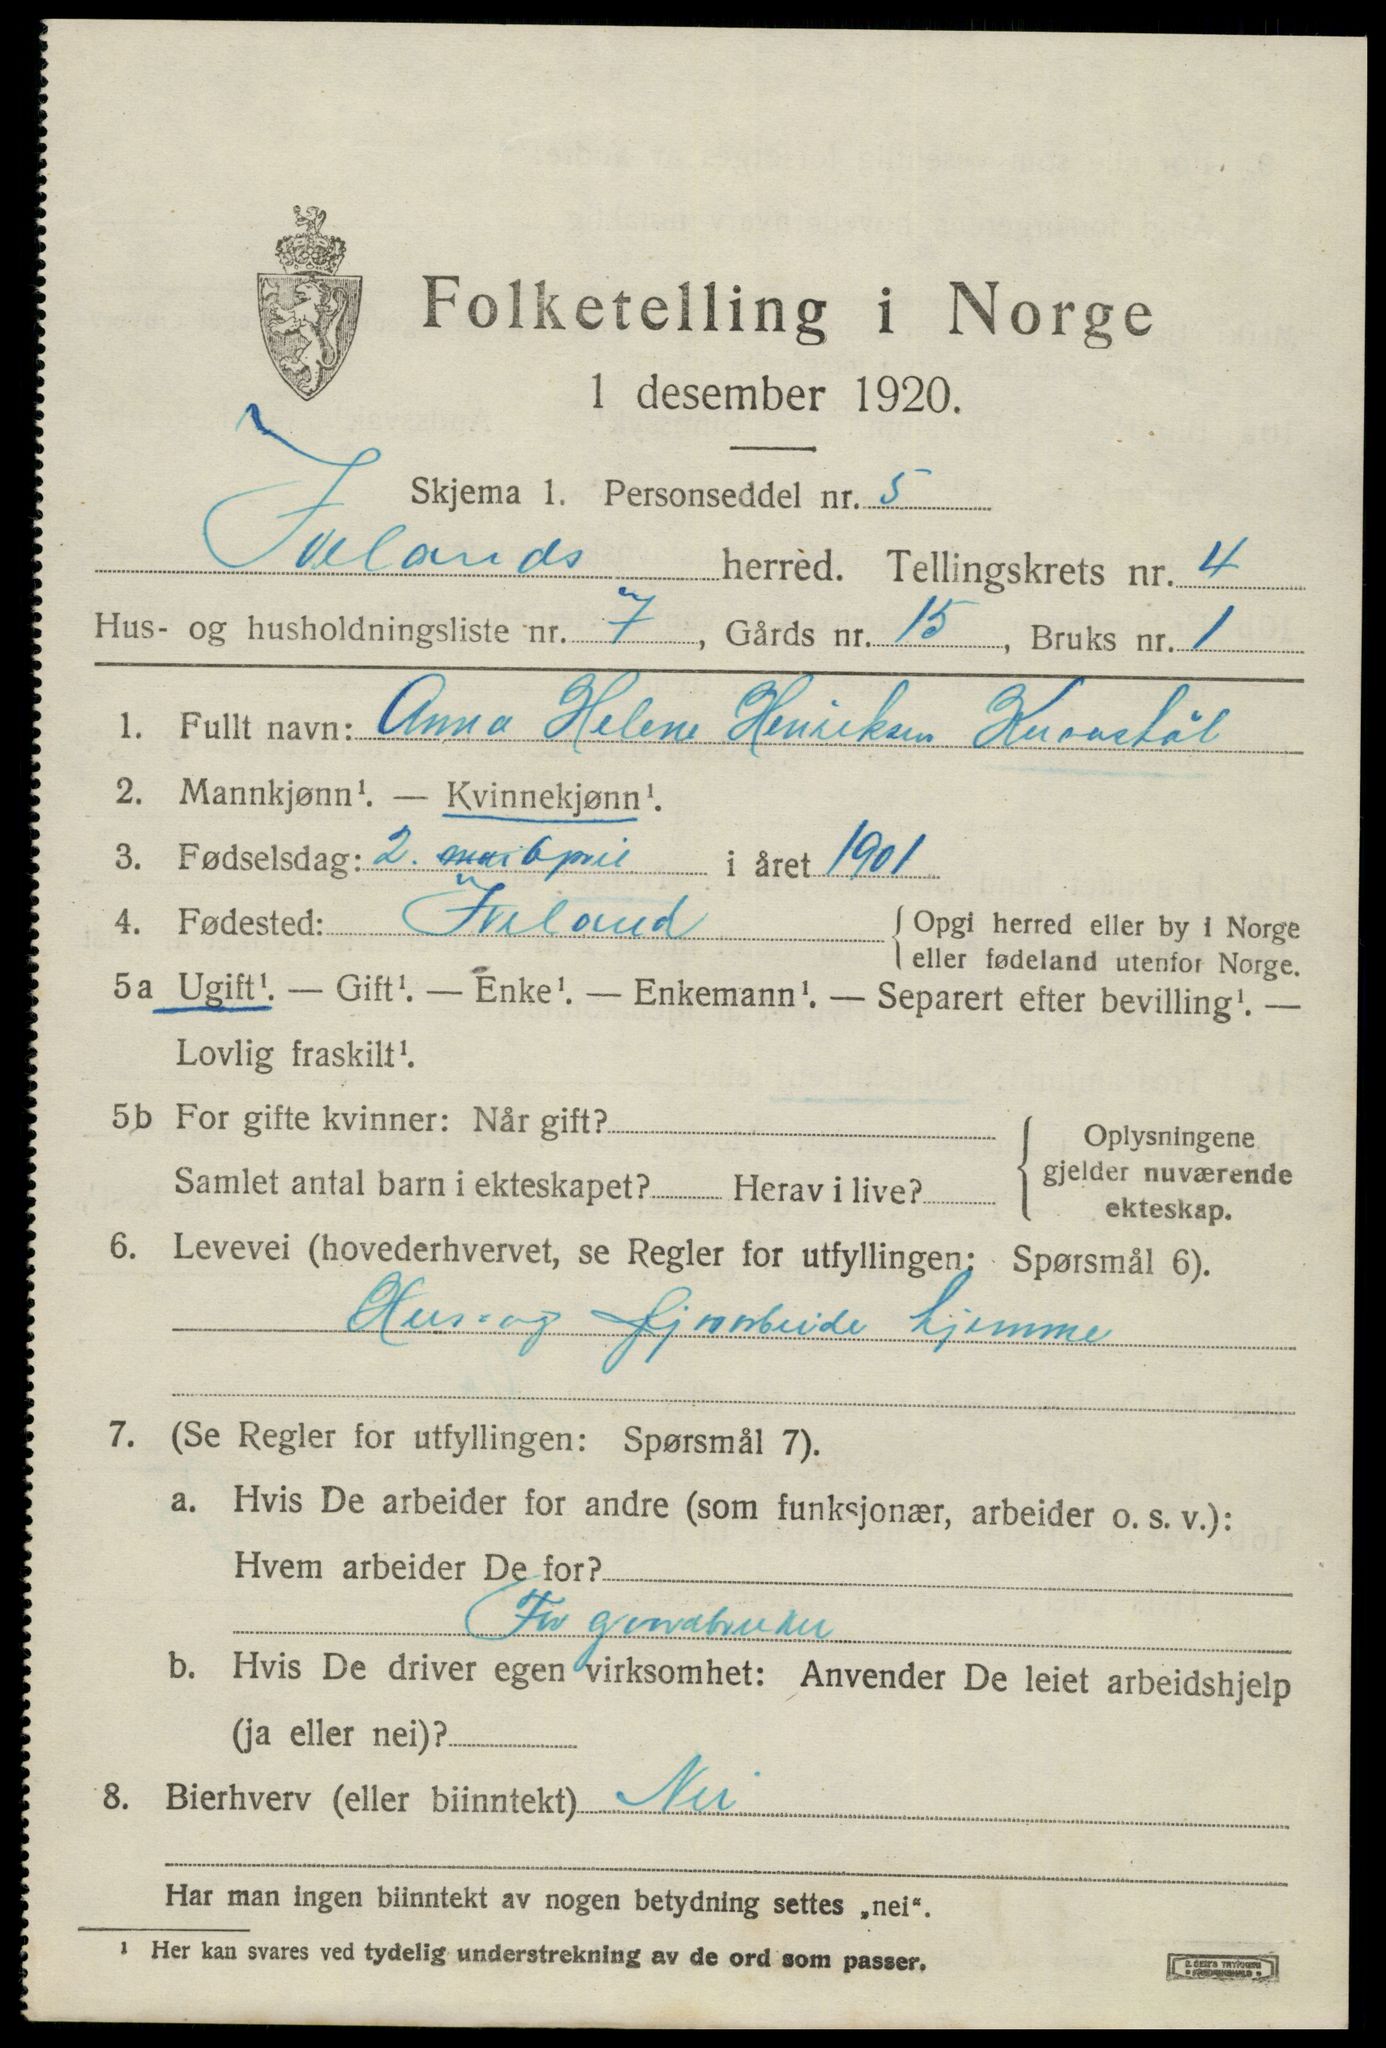 Folketelling i Norge
1 desember 1920.
Skjema 1. Personseddel nr. 5
Ivelands herred. Tellingskrets nr. 4
Hus- og husholdningsliste nr. 7, Gårds nr. 15, Bruks nr. 1
1. Fullt navn: Anna Helene Henriksen
2. Mannkjønn¹. — Kvinnekjønn¹.
3. Fødselsdag: 2. mai april i året 1901
4. Fødested: Iveland { Opgi herred eller by i Norge
eller fødeland utenfor Norge.
5a Ugift¹. — Gift¹. — Enke¹. — Enkemann¹. — Separert efter bevilling¹. —
Lovlig fraskilt¹.
5b For gifte kvinner: Når gift?
Samlet antal barn i ekteskapet? Herav i live?
{ Oplysningene
gjelder nuværende
ekteskap.
6. Levevei (hovederhvervet, se Regler for utfyllingen: Spørsmål 6).
Hus- og fjøsarbeide hjemme
7. (Se Regler for utfyllingen: Spørsmål 7).
a. Hvis De arbeider for andre (som funksjonær, arbeider o. s. v.):
Hvem arbeider De for?
For gardbruker
b. Hvis De driver egen virksomhet: Anvender De leiet arbeidshjelp
(ja eller nei)?
8. Bierhverv (eller biinntekt) Nei
Har man ingen biinntekt av nogen betydning settes „nei“.
¹ Her kan svares ved tydelig understrekning av de ord som passer.